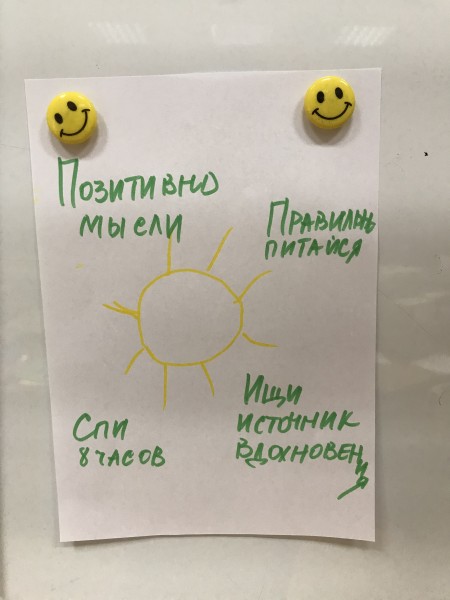 Позитивно
мысли
Правильно
питайся
Спи
8 часов
Ищи
источник
вдохновения